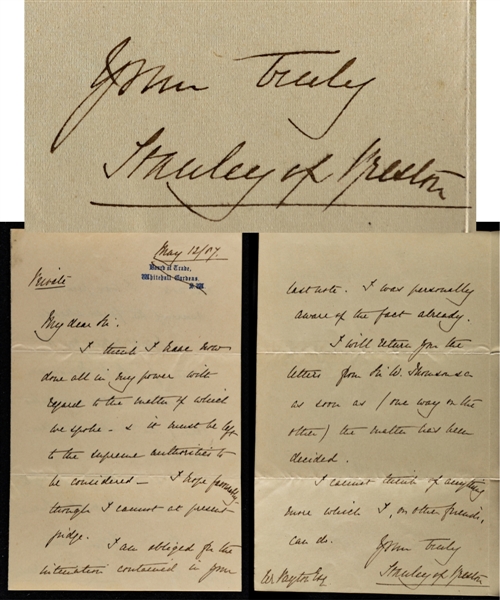 Yours truly
Stanley of Preston
May 12/87.
Board of Trade,
Whitehall Gardens.
S.W.
Private
My dear Sir.
I think I have now
done all in my power with
regard to the matter of which
we spoke - & it must be left
to the supreme authorities to
be considered - I hope favourably
though I cannot at present
judge.
I am obliged for the
intimation contained in your
last note. I was personally
aware of the fact already.
I will return you the
letters from Sir W. Thomson &c
as soon as (one way or the
other) the matter has been
decided.
I cannot think of anything
more which I, or other friends,
can do.
Yours truly
Stanley of Preston
W. Payton Esq